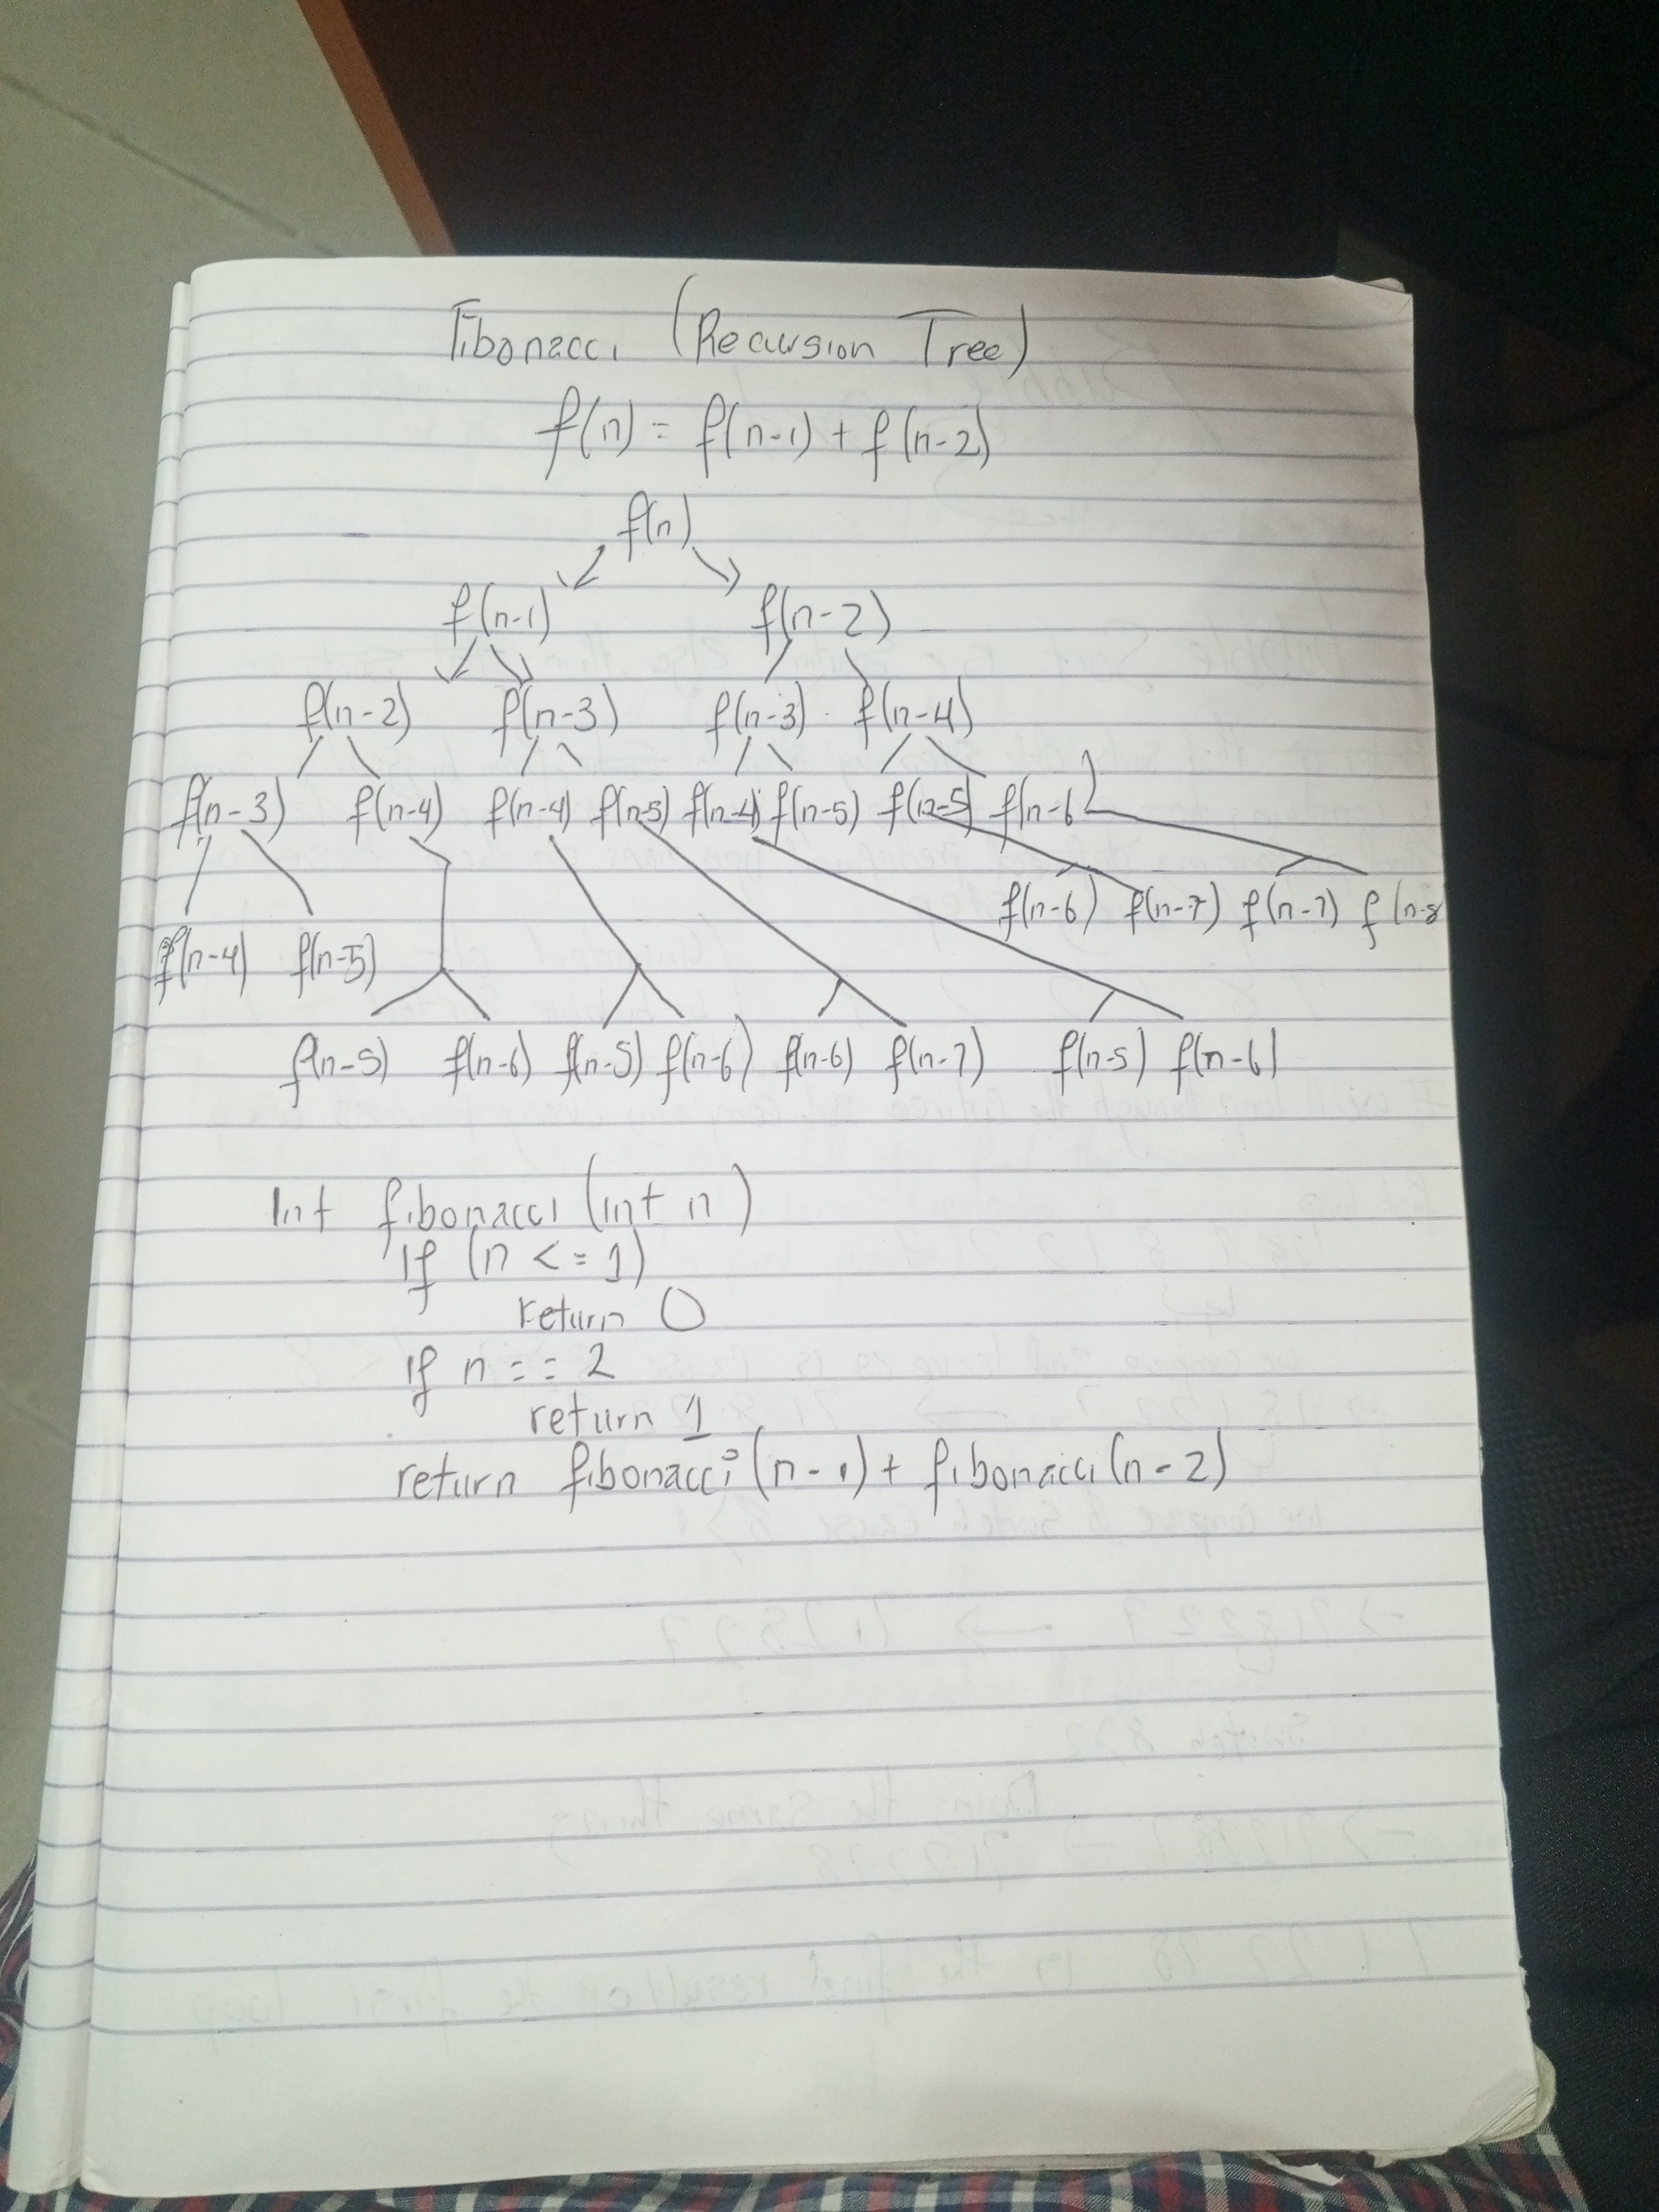 Fibonacci (Recursion Tree)
f(n) = f(n-1) + f(n-2)
f(n)
f(n-1) f(n-2)
f(n-2) f(n-3) f(n-3) f(n-4)
f(n-3) f(n-4) f(n-4) f(n-5) f(n-4) f(n-5) f(n-5) f(n-6)
f(n-6) f(n-7) f(n-7) f(n-8
f(n-4) f(n-5)
f(n-5) f(n-6) f(n-5) f(n-6) f(n-6) f(n-7) f(n-5) f(n-6)
Int fibonacci (int n)
if (n <= 1)
return 0
if n == 2
return 1
return fibonacci (n-1) + fibonacci (n-2)